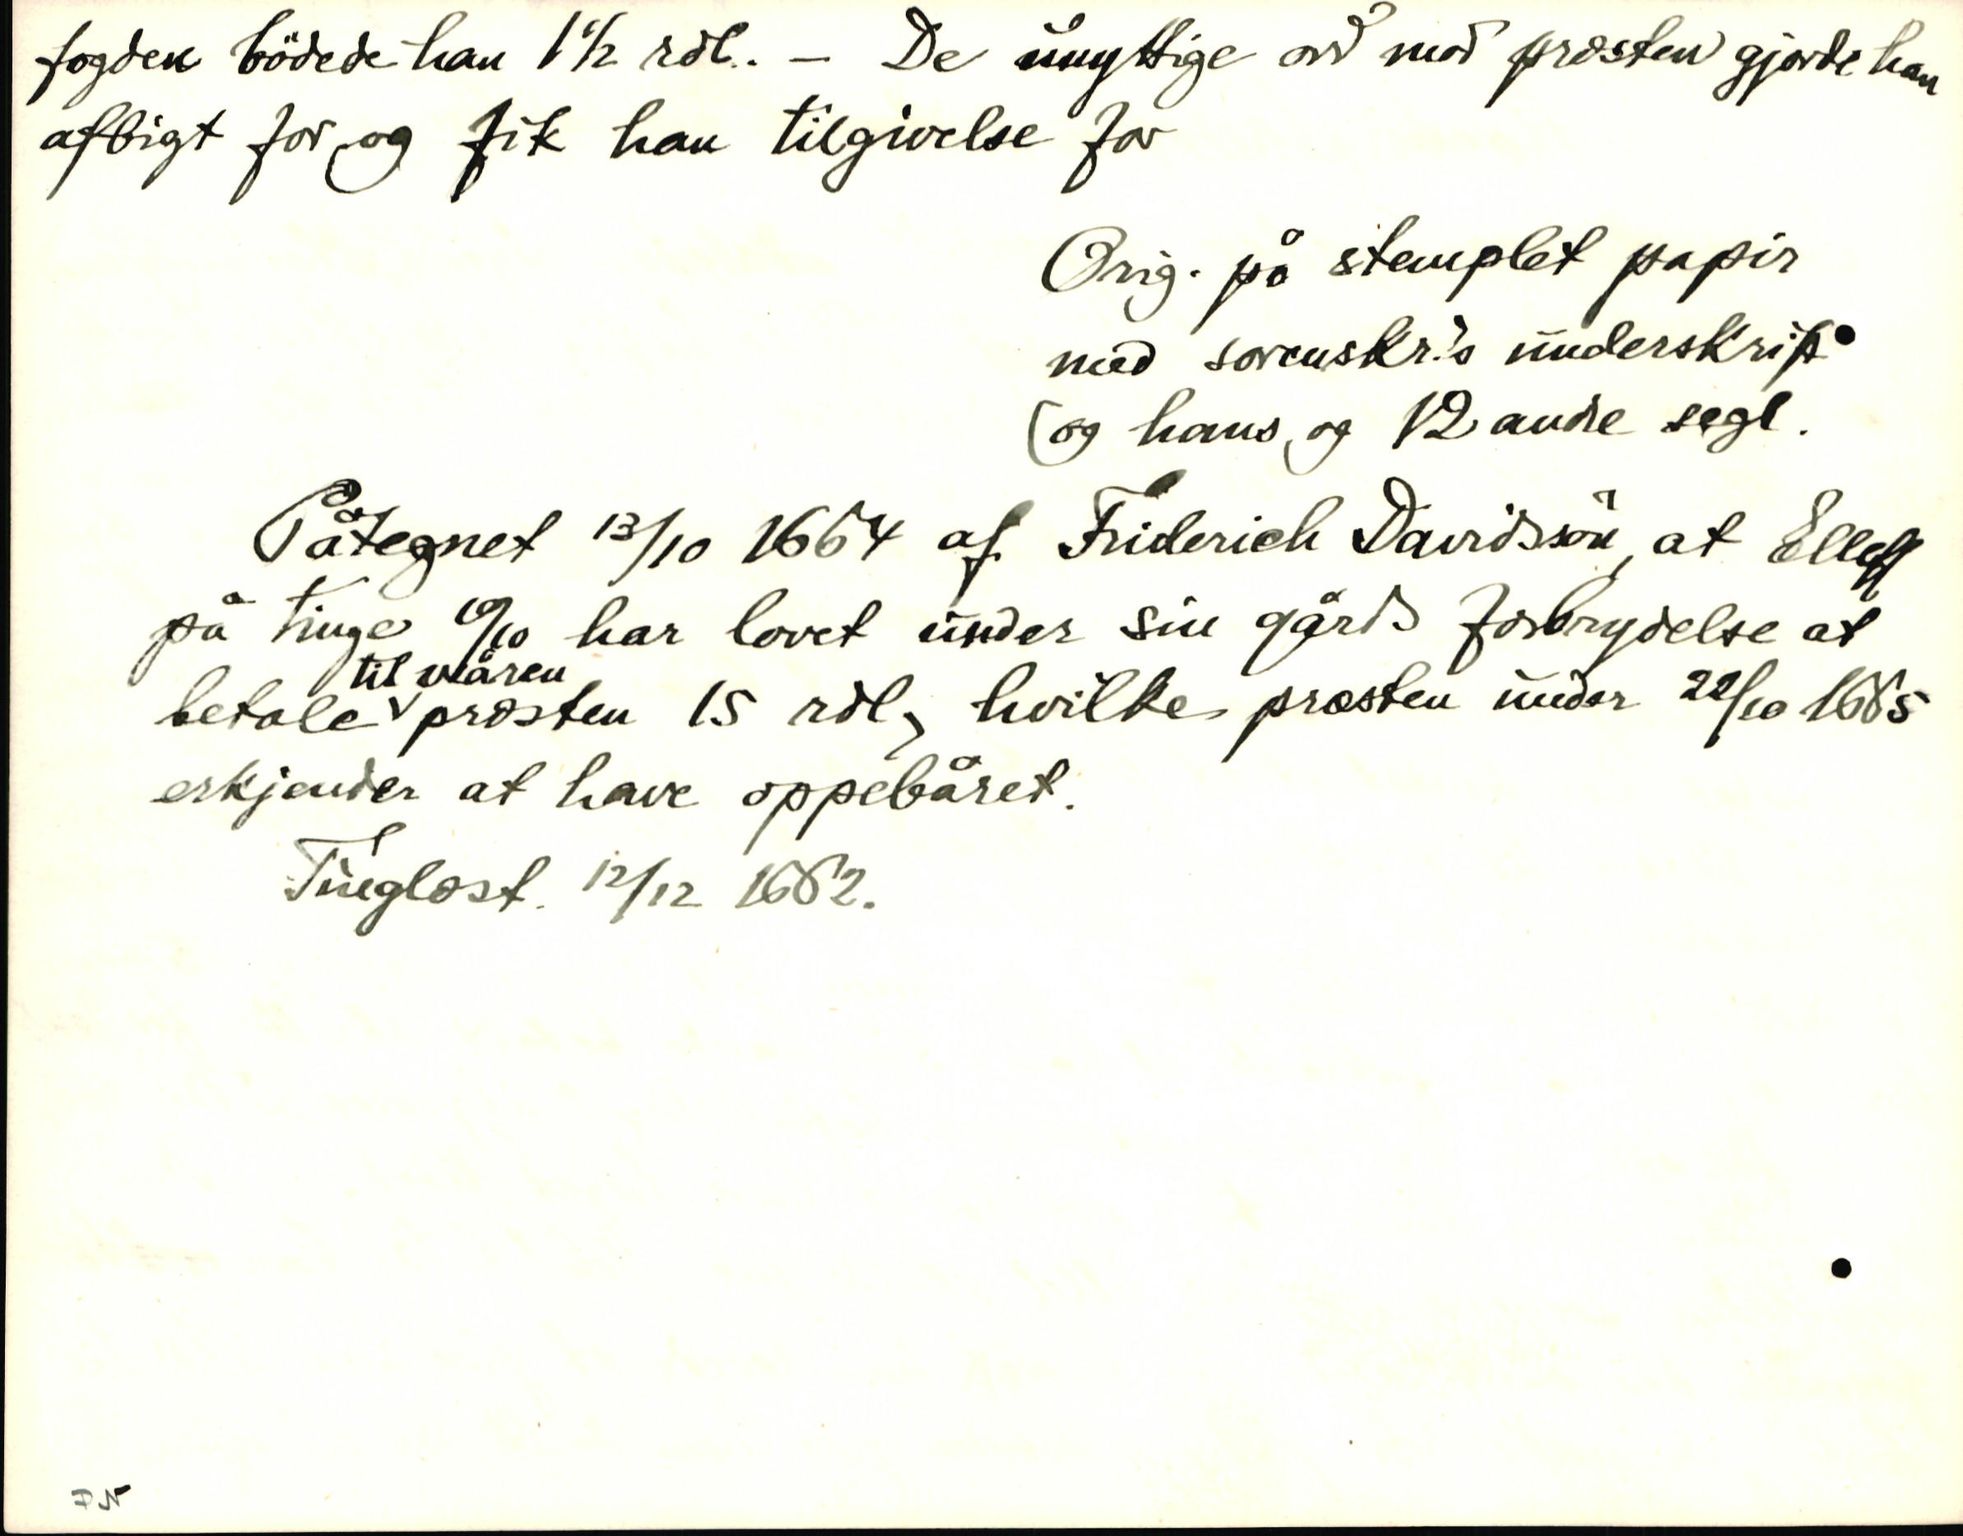 fogden bödede han 1 1/2 rdl. - De unyttige ord mod præsten gjorde han
afbigt for og fik han tilgivelse for
Orig. på stemplet papir
med sorenskr.'s underskrift
(og hans og 12 andre segl.
Påtegnet 13/10 1664 af Friderich Davidssön, at Elleff
på tinge 10/10 har lovet under sin gårds forbrydelse at
til våren
betale præsten 15 rdl, hvilke præsten under 22/10 1665
erkjender at have oppebåret.
Tinglæst. 12/12 1662.